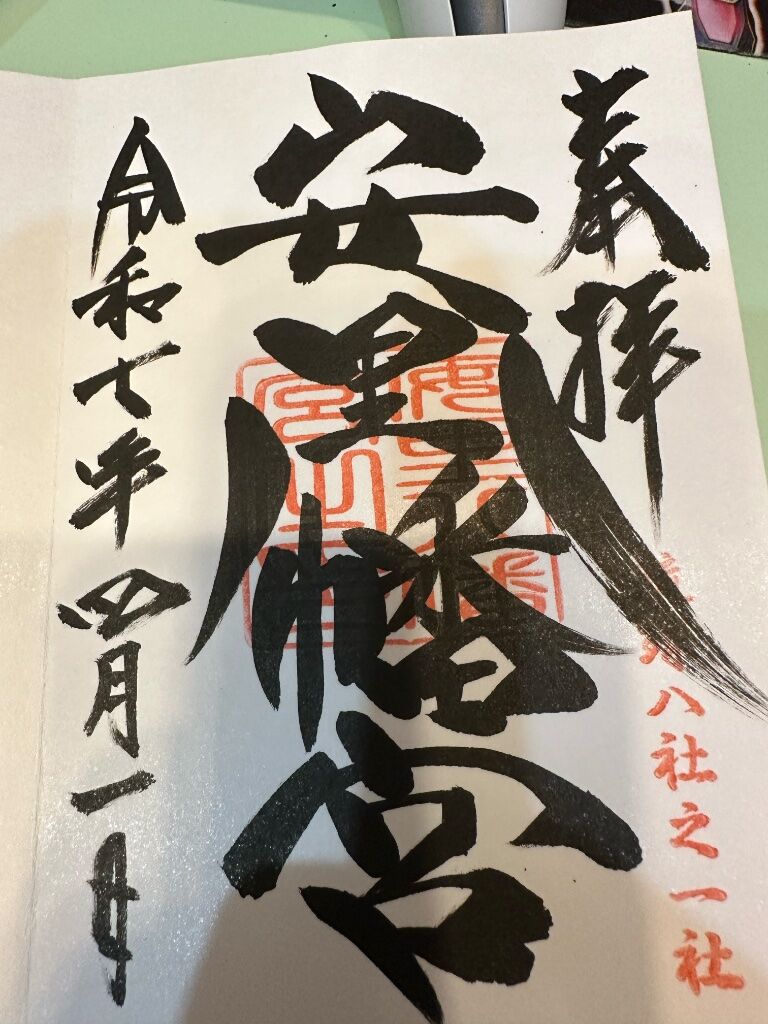 奉拝
八社之一社
安里八幡宮
令和七年四月一日